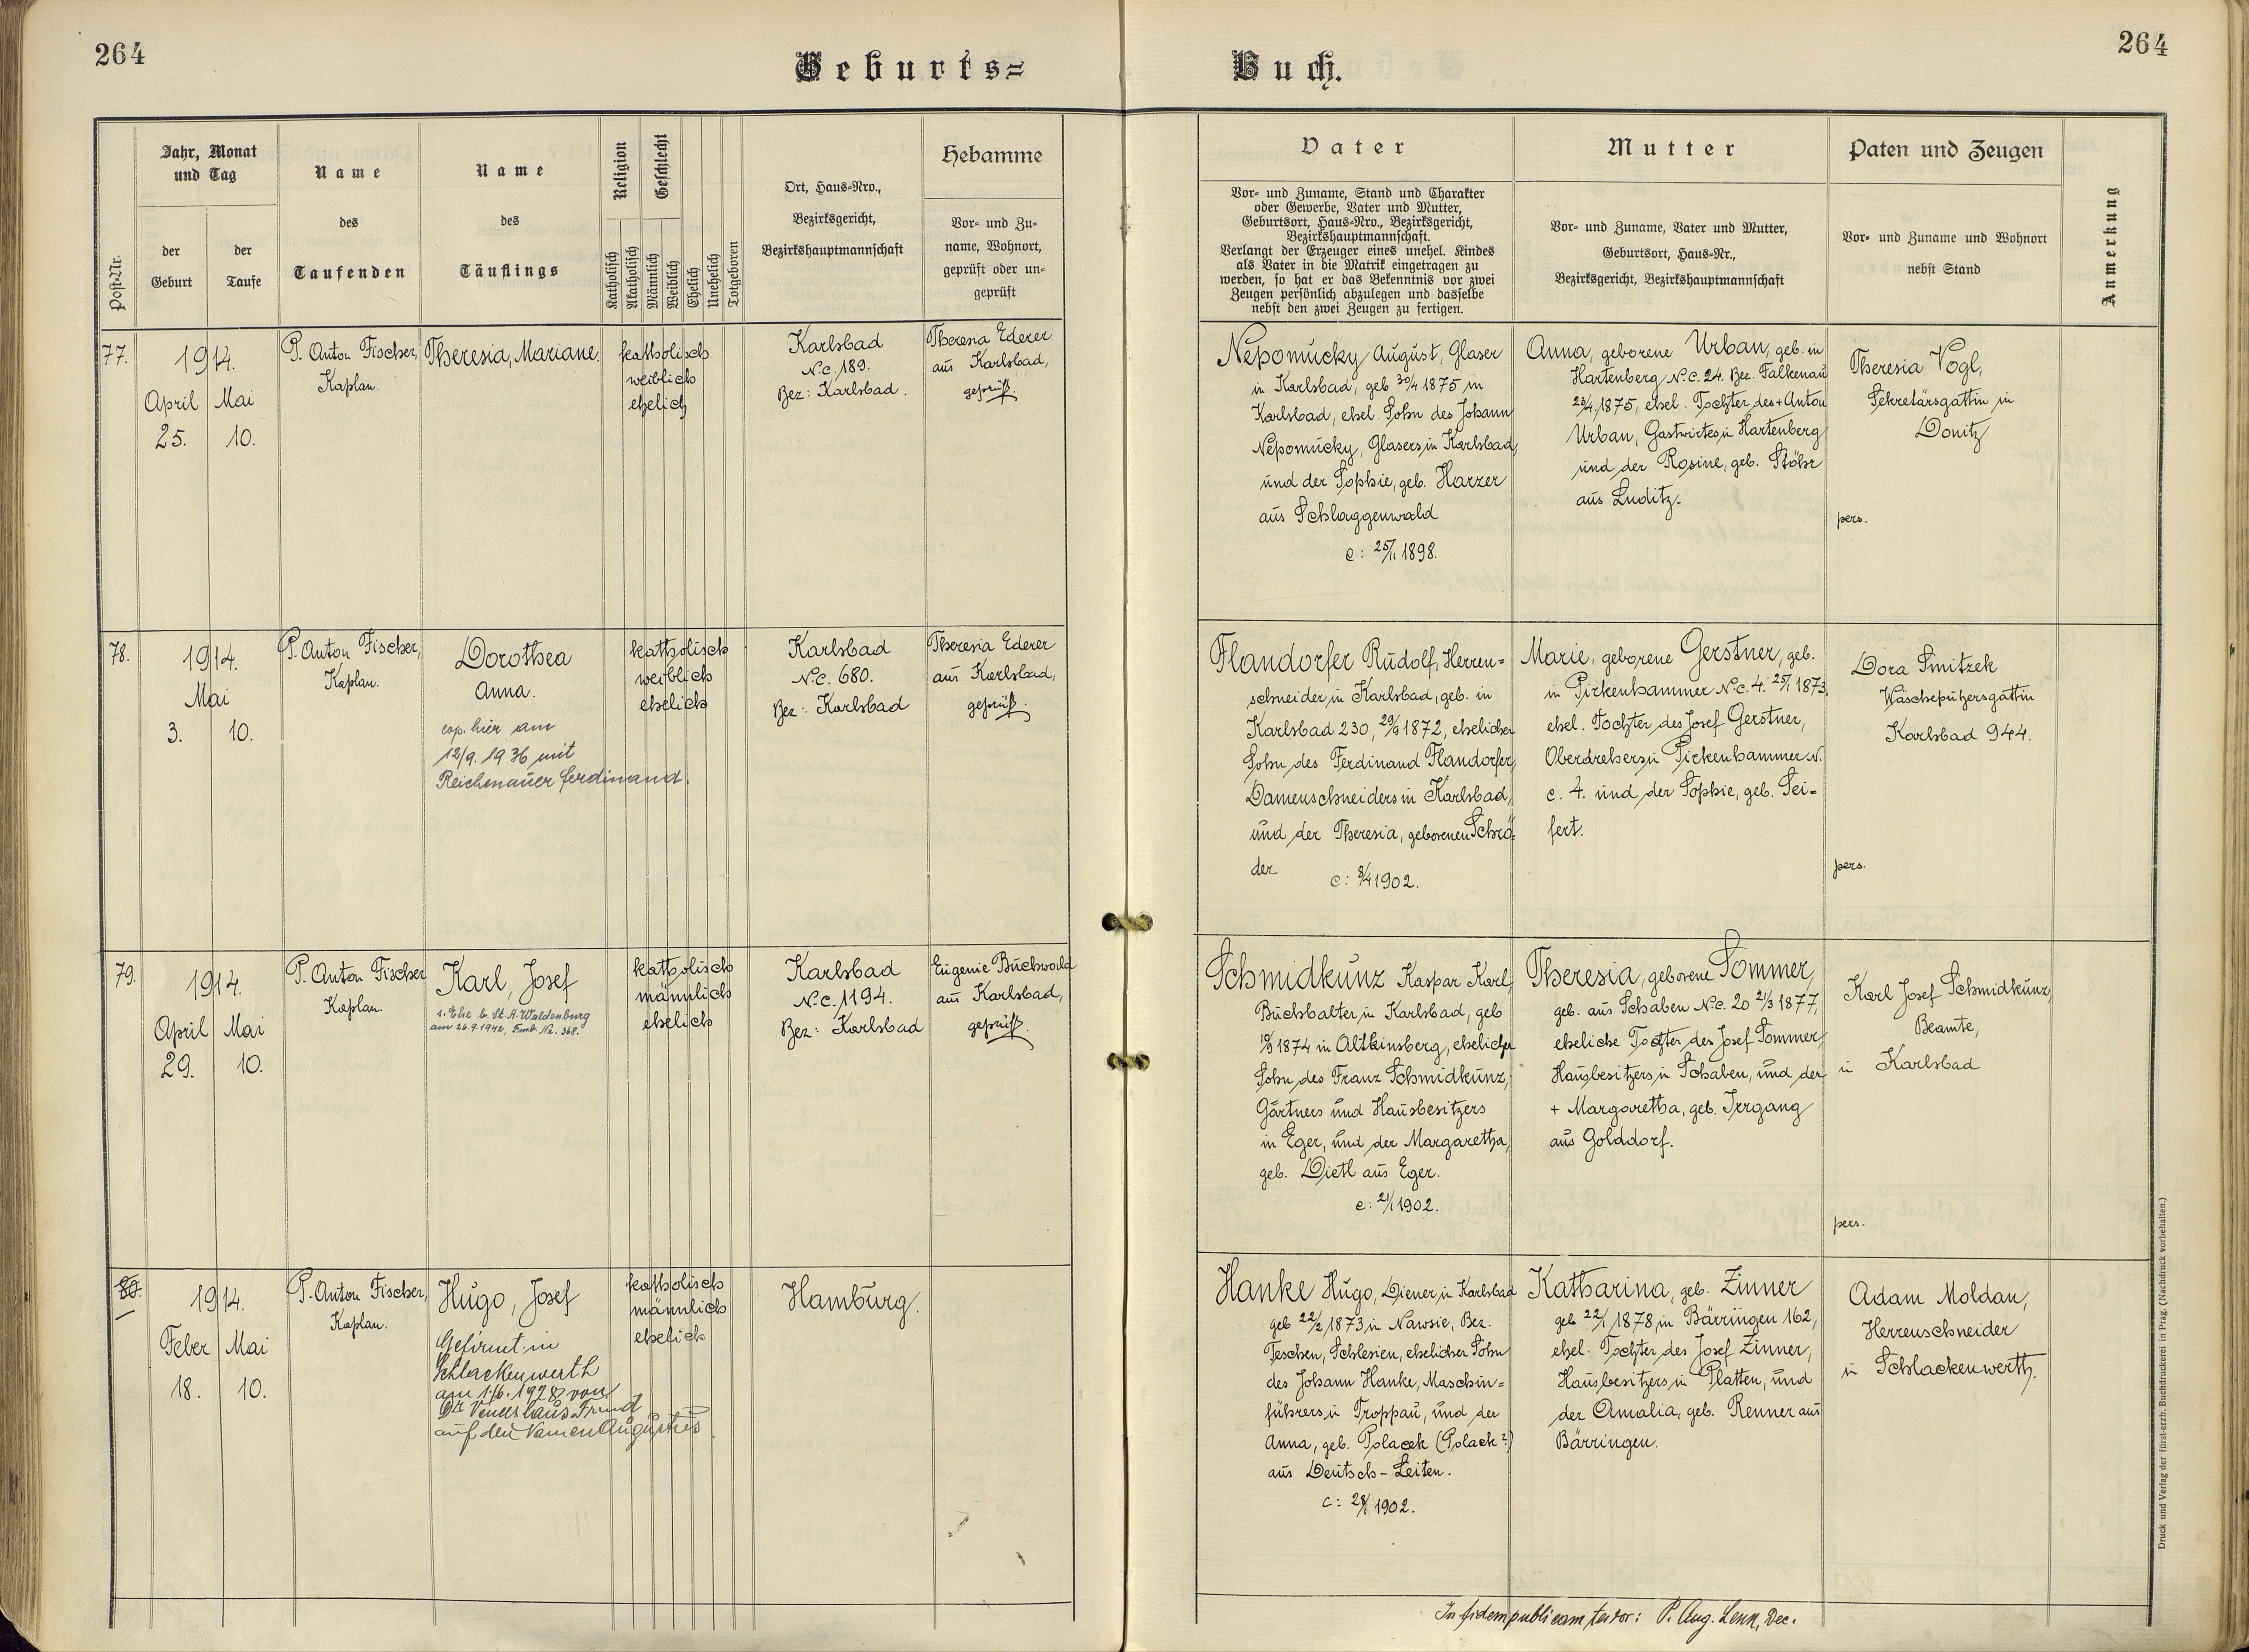 264
Geburts=
Buch.
264
Post-Nr.
Jahr, Monat
und Tag
der
Geburt
der
Taufe
Name
des
Taufenden
Name
des
Täuflings
Religion
Katholisch
Akatholisch
Geschlecht
Männlich
Weiblich
Ehelich
Unehelich
Totgeboren
Ort, Haus-Nro.,
Bezirksgericht,
Bezirkshauptmannschaft
Hebamme
Vor- und Zu-
name, Wohnort,
geprüft oder un-
geprüft
Vater
Vor- und Zuname, Stand und Charakter
oder Gewerbe, Vater und Mutter,
Geburtsort, Haus-Nro., Bezirksgericht,
Bezirkshauptmannschaft.
Verlangt der Erzeuger eines unehel. Kindes
als Vater in die Matrik eingetragen zu
werden, so hat er das Bekenntnis vor zwei
Zeugen persönlich abzulegen und dasselbe
nebst den zwei Zeugen zu fertigen.
Mutter
Vor- und Zuname, Vater und Mutter,
Geburtsort, Haus-Nr.,
Bezirksgericht, Bezirkshauptmannschaft
Paten und Zeugen
Vor- und Zuname und Wohnort
nebst Stand
Anmerkung
77.
1914.
April Mai
25. 10.
P. Anton Fischer,
Kaplan.
Theresia, Mariane.
katholisch
weiblich
ehelich
Karlsbad
N.c. 189.
Bez: Karlsbad.
Theresia Ederer
aus Karlsbad,
geprüft
Nepomucky August, Glaser
in Karlsbad, geb 30/4 1875 in
Karlsbad, ehel. Sohn des Johann
Nepomucky, Glasers in Karlsbad,
und der Sophie, geb. Harzer
aus Schlaggenwald
c: 25/1 1898.
Anna, geborene Urban, geb. in
Hartenberg N.C. 24. Bez. Falkenau
23/4 1875, ehel. Tochter des + Anton
Urban, Gastwirtes in Hartenberg
und der Rosine, geb. Stöhr
aus Luditz.
Theresia Vogl,
Sekretärsgattin in
Donitz
pers.
78.
1914.
Mai
3. 10.
P. Anton Fischer,
Kaplan.
Dorothea
Anna.
cop. hier am
12/9. 1936 mit
Reichenauer Ferdinand.
katholisch
weiblich
ehelich
Karlsbad
N.c. 680.
Bez: Karlsbad
Theresia Ederer
aus Karlsbad,
geprüft.
Flandorfer Rudolf, Herren=
schneider in Karlsbad, geb. in
Karlsbad 230, 29/9 1872, ehelicher
Sohn des Ferdinand Flandorfer,
Damenschneiders in Karlsbad,
und der Theresia, geborenen Schrö=
der
c: 8/4 1902.
Marie, geborene Gerstner, geb.
in Pirkenhammer N.c. 4. 25/1 1873,
ehel. Tochter des Josef Gerstner,
Oberdrehers in Pirkenhammer N.
c. 4. und der Sophie, geb. Sei=
fert.
Dora Smitzek
Wäscheputzersgattin
Karlsbad 944.
pers.
79.
1914.
April Mai
29. 10.
P. Anton Fischer
Kaplan.
Karl, Josef
1. Ehe b. St. A. Waldenburg
am 26.9.1942, Fmb. Nr. 368.
katholisch
männlich
ehelich
Karlsbad
N.c. 1194.
Bez: Karlsbad
Eugenie Buchwald
aus Karlsbad,
geprüft.
Schmidkunz Kaspar Karl,
Buchhalter in Karlsbad, geb
1874 in Altkinsberg, ehelicher
Sohn des Franz Schmidkunz,
Gärtners und Hausbesitzers
in Eger, und der Margaretha,
geb. Dietl aus Eger.
c: 21/1 1902.
Theresia, geborene Sommer,
geb. aus Schaben N.c. 20 21/3 1877,
eheliche Tochter des Josef Sommer,
Hausbesitzers in Schaben, und der
+ Margaretha, geb. Irrgang
aus Golddorf.
Karl Josef Schmidkunz,
Beamte,
in Karlsbad
pers.
80.
1914.
Feber Mai
18. 10.
P. Anton Fischer,
Kaplan.
Hugo, Josef
Gefirmt in
Schlackenwerth
am 1/6. 1928 von
Dr Venceslaus Frind
auf den Namen Augustus
katholisch
männlich
ehelich
Hamburg.
Hanke Hugo, Diener in Karlsbad
geb 22/2 1873 in Nawsie, Bez.
Teschen, Schlesien, ehelicher Sohn
des Johann Hanke, Maschin=
führers in Troppau, und der
Anna, geb. Polacek (Polack?)
aus Deutsch-Leiten.
c: 28/1 1902.
Katharina, geb. Zinner
geb 22/1 1878, in Bärringen 162,
ehel. Tochter des Josef Zinner,
Hausbesitzers in Platten, und
der Amalia, geb. Renner aus
Bärringen.
Adam Moldan,
Herrenschneider
in Schlackenwerth.
In fidem publicam testor: P. Aug. Lenk, Dec.
Druck und Verlag der fürst-erzb. Buchdruckerei in Prag. (Nachdruck vorbehalten.)